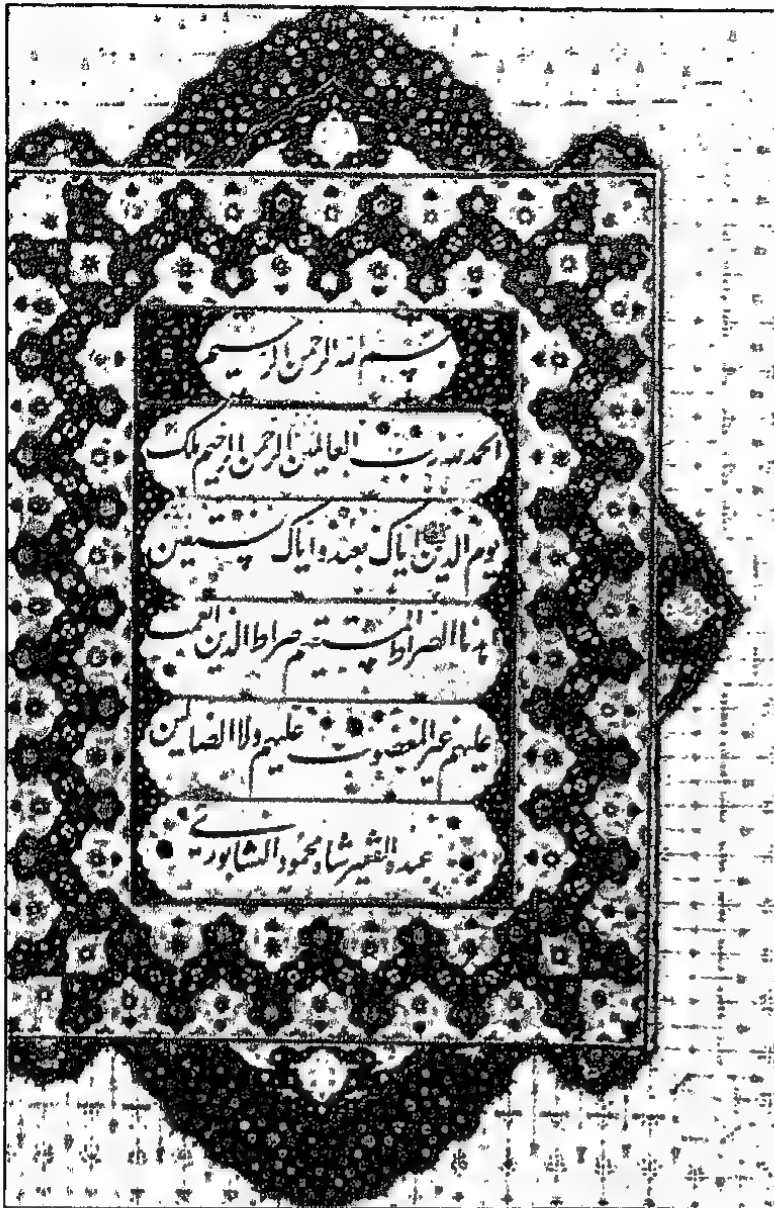 بسم الله الرحمن الرحیم
الحمد لله رب العالمین الرحمن الرحیم ملک
یوم الدین ایاک نعبد و ایاک نستعین
اهدنا الصراط المستقیم صراط الذین انعمت
علیهم غیر المغضوب علیهم ولا الضالین
عبده الفقیر شاه محمود النشابوری